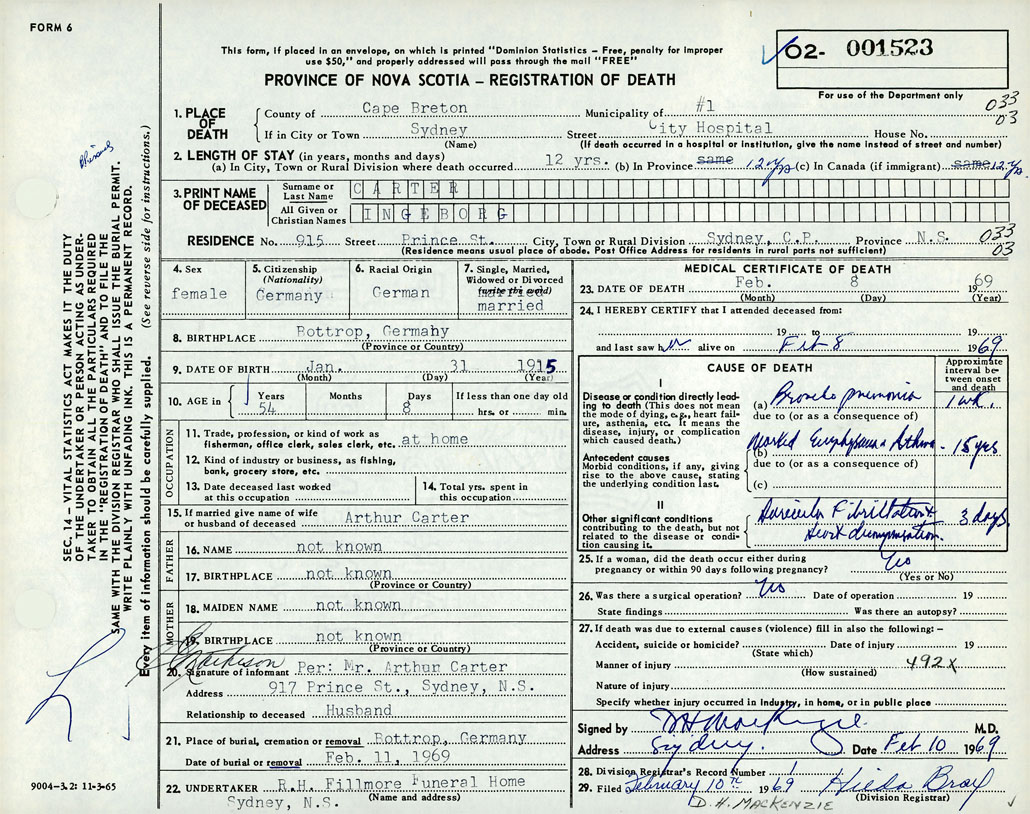 FORM 6
This form, if placed in an envelope, on which is printed "Dominion Statistics – Free, penalty for improper
use $50," and properly addressed will pass through the mail "FREE"
02- 001523
For use of the Department only
PROVINCE OF NOVA SCOTIA – REGISTRATION OF DEATH
033
03
1. PLACE OF DEATH
County of Cape Breton Municipality of #1
If in City or Town Sydney Street City Hospital House No.
(Name) (If death occurred in a hospital or institution, give the name instead of street and number)
2. LENGTH OF STAY (in years, months and days)
(a) In City, Town or Rural Division where death occurred 12 yrs. (b) In Province same 12 yrs (c) In Canada (if immigrant) same 12 yrs.
3. PRINT NAME OF DECEASED
Surname or Last Name CARTER
All Given or Christian Names INGEBORG
RESIDENCE No. 915 Street Prince St. City, Town or Rural Division Sydney, C.P. Province N.S. 033
03
(Residence means usual place of abode. Post Office Address for residents in rural parts not sufficient)
4. Sex
female
5. Citizenship
(Nationality)
Germany
6. Racial Origin
German
7. Single, Married,
Widowed or Divorced
(write the word)
married
married
8. BIRTHPLACE Bottrop, Germahy
(Province or Country)
9. DATE OF BIRTH Jan. 31 1915
(Month) (Day) (Year)
10. AGE in Years Months Days If less than one day old
54 8 hrs. or min.
OCCUPATION
11. Trade, profession, or kind of work as
fisherman, office clerk, sales clerk, etc. at home
12. Kind of industry or business, as fishing,
bank, grocery store, etc.
13. Date deceased last worked
at this occupation
14. Total yrs. spent in
this occupation
15. If married give name of wife
or husband of deceased Arthur Carter
FATHER
16. NAME not known
17. BIRTHPLACE not known
(Province or Country)
MOTHER
18. MAIDEN NAME not known
19. BIRTHPLACE not known
(Province or Country)
20. Signature of informant Per: Mr. Arthur Carter
Address 917 Prince St., Sydney, N.S.
Relationship to deceased Husband
21. Place of burial, cremation or removal Bottrop, Germany
Date of burial or removal Feb. 11, 1969
22. UNDERTAKER R.H. Fillmore Funeral Home
Sydney, N.S. (Name and address)
MEDICAL CERTIFICATE OF DEATH
23. DATE OF DEATH Feb. 8 1969
(Month) (Day) (Year)
24. I HEREBY CERTIFY that I attended deceased from:
19 to 19
and last saw her alive on Feb 8 1969
CAUSE OF DEATH
Approximate interval between onset and death
I
Disease or condition directly leading
to death (This does not mean
the mode of dying, e.g., heart failure,
asthenia, etc. It means the
disease, injury, or complication
which caused death.)
(a) Broncho pneumonia 1 wk.
due to (or as a consequence of)
Antecedent causes
Morbid conditions, if any, giving
rise to the above cause, stating
the underlying condition last.
(b) Marked Emphysema & Asthma - 15 yrs
due to (or as a consequence of)
(c)
II
Other significant conditions
contributing to the death, but not
related to the disease or condition
causing it.
Auricular Fibrillation & 3 days
Heart decompensation.
25. If a woman, did the death occur either during
pregnancy or within 90 days following pregnancy? No
(Yes or No)
26. Was there a surgical operation? No Date of operation 19
State findings Was there an autopsy?
27. If death was due to external causes (violence) fill in also the following: –
Accident, suicide or homicide? Date of injury 19
(State which)
Manner of injury 492X
(How sustained)
Nature of injury
Specify whether injury occurred in industry, in home, or in public place
Signed by D H MacKenzie M.D.
Address Sydney. Date Feb 10 1969
28. Division Registrar's Record Number 1
29. Filed February 10th 1969 Hilda Bray
(Division Registrar)
D. H. MACKENZIE
SEC. 14 – VITAL STATISTICS ACT MAKES IT THE DUTY
OF THE UNDERTAKER OR PERSON ACTING AS UNDERTAKER
TO OBTAIN ALL THE PARTICULARS REQUIRED
IN THE "REGISTRATION OF DEATH" AND TO FILE THE
SAME WITH THE DIVISION REGISTRAR WHO SHALL ISSUE THE BURIAL PERMIT.
WRITE PLAINLY WITH UNFADING INK. THIS IS A PERMANENT RECORD.
Every item of information should be carefully supplied. (See reverse side for instructions.)
9004–3.2: 11-3-65